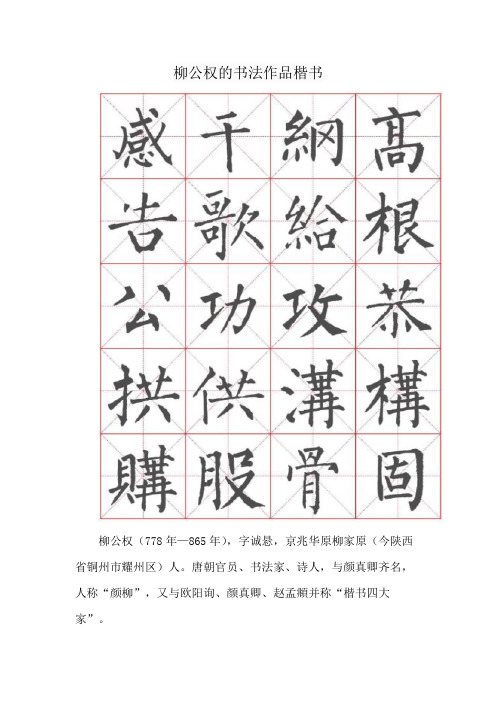 柳公权的书法作品楷书
感干綱髙
告歌給根
公功攻恭
拱供溝構
購股骨固
柳公权（778年—865年），字诚悬，京兆华原柳家原（今陕西
省铜州市耀州区）人。唐朝官员、书法家、诗人，与颜真卿齐名，
人称“颜柳”，又与欧阳询、颜真卿、赵孟頫并称“楷书四大
家”。